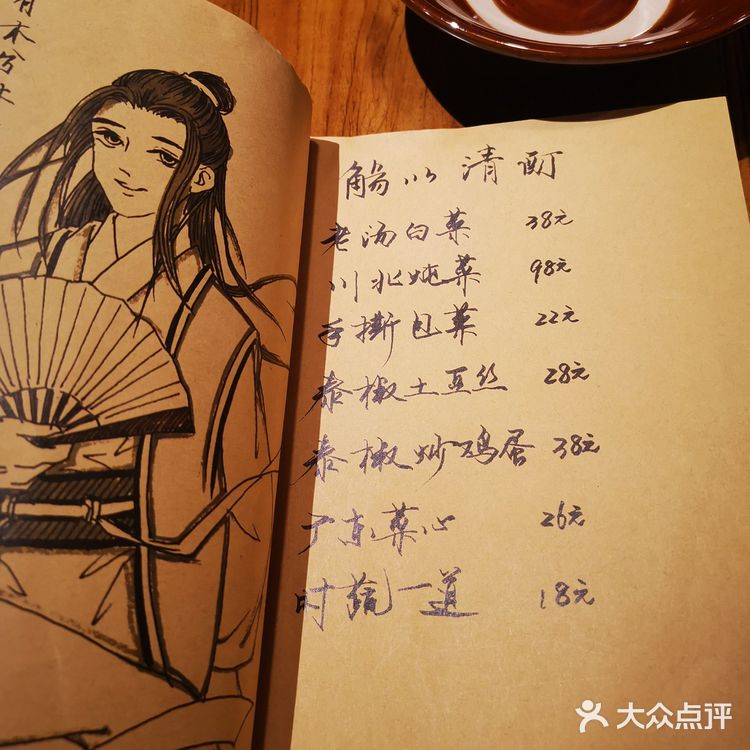 有木兮木
觞以清酊
老汤白菜 38元
川北炖菜 98元
手撕包菜 22元
泰椒土豆丝 28元
泰椒炒鸡蛋 38元
广东菜心 26元
时蔬一道 18元
大众点评